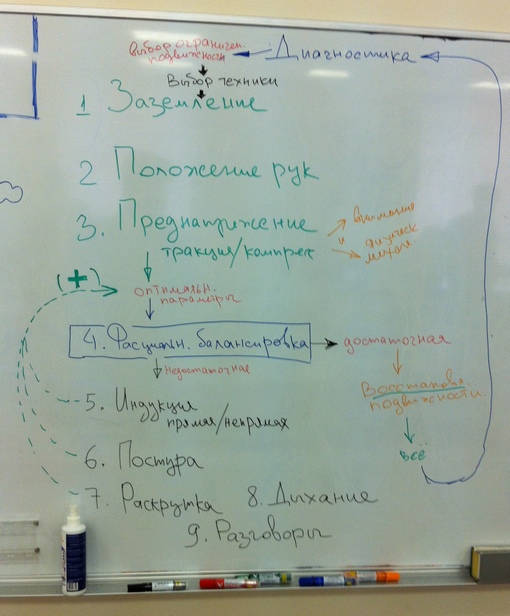 Диагностика
выбор ограничен.
подвижности
Выбор техники
1 Заземление
2 Положение рук
3. Преднатяжение
тракция/компрес
внимание
и
физическ
(+)
оптимальн.
параметры
4. балансировка
достаточная
Недостаточная
Восстановл.
подвижности.
всё
5. Индукция
прямая/непрямая
6. Постура
7. Раскрутка 8. Дихание
9. Разговоры